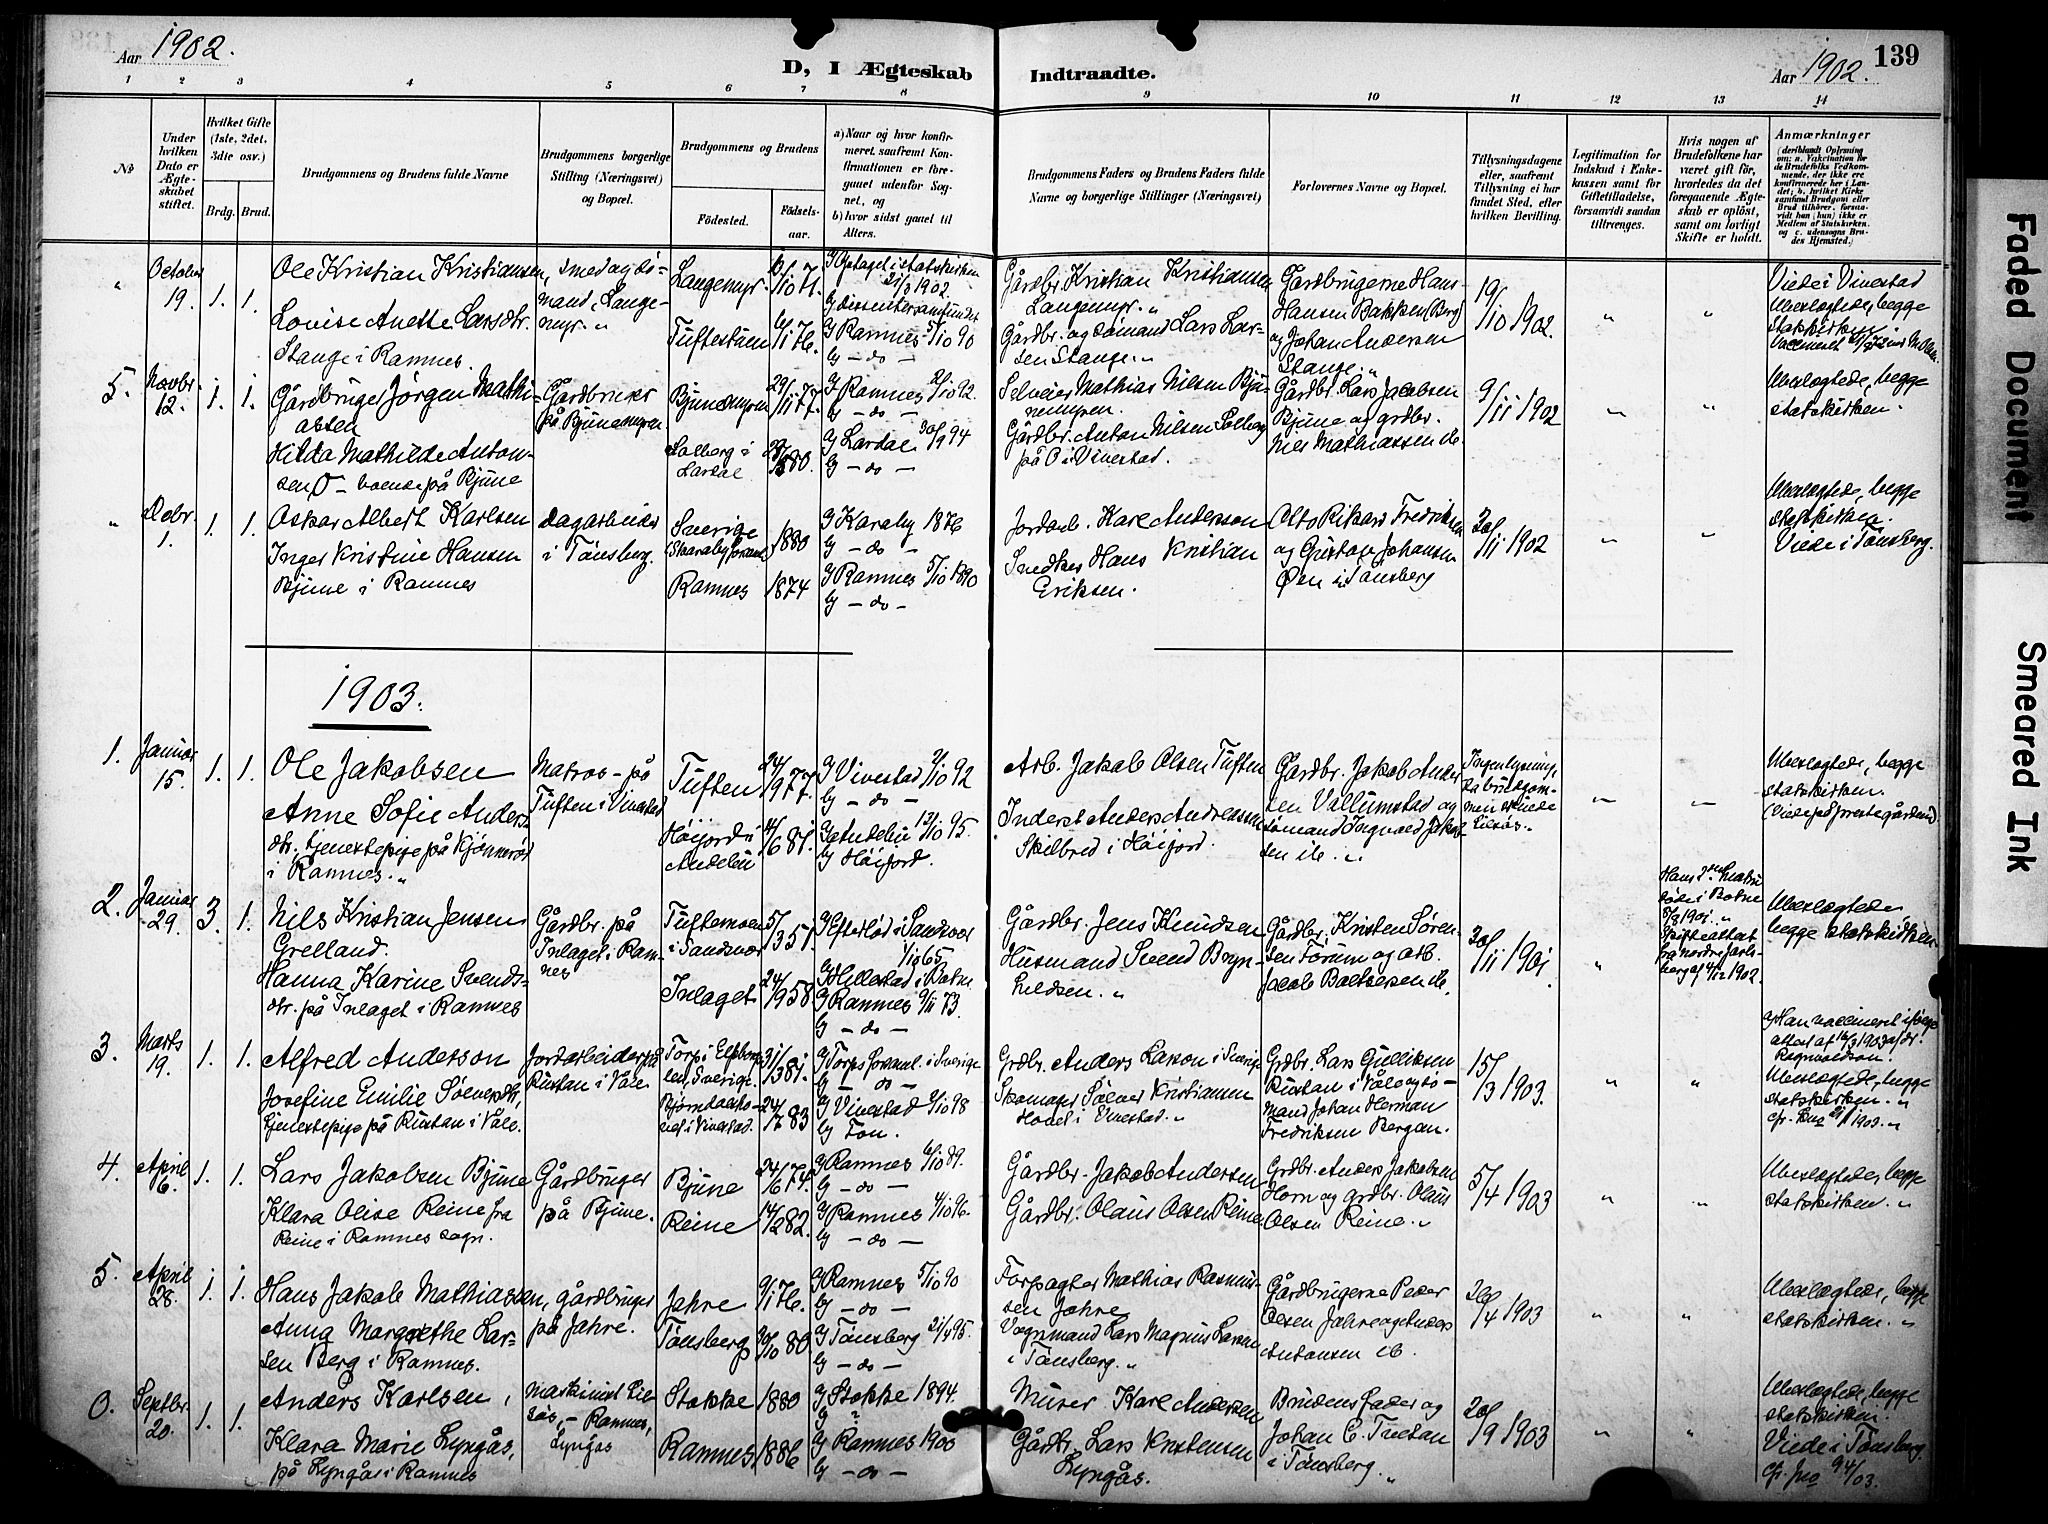 Aar 1902.
D, I Ægteskab
Indtraadte.
Aar 1902.
139
1 2 3 4 5 6 7 8 9 10 11 12 13 14
№
Under hvilken Dato er Ægteskabet stiftet.
Hvilket Gifte (1ste, 2det, 3die osv.)
Brdg. Brud.
Brudgommens og Brudens fulde Navne
Brudgommens borgerlige Stilling (Næringsvei) og Bopæl.
Brudgommens og Brudens
Fødested. Fødselsaar.
a) Naar og hvor konfirmeret, saafremt Konfirmationen er foregaaet udenfor Sognet, og
b) hvor sidst gaaet til Alters.
Brudgommens Faders og Brudens Faders fulde Navne og borgerlige Stillinger (Næringsvei)
Forlovernes Navne og Bopæl.
Tillysningsdagene eller, saafremt Tillysning ei har fundet Sted, efter hvilken Bevilling.
Legitimation for Indskud i Enkekassen samt for Giftetilladelse, forsaavidt saadan tiltrænges.
Hvis nogen af Brudefolkene har været gift før, hvorledes da det foregaaende Ægteskab er opløst, samt om lovligt Skifte er holdt.
Anmærkninger
(deriblandt Oplysning om: a. Vaccination for de Brudefolks Vedkommende, der ikke ere konfirmerede her i Landet; b. hvilket Kirkesamfund Brudgom eller Brud tilhører, forsaavidt han (hun) ikke er Medlem af Statskirken, og c. udensogns Brudes Hjemsted.)
" October 19. 1. 1.
Ole Kristian Kristiansen, smed og sømand, Langemyr. "
Langemyr. 6/10 71.
a) Optaget i statskirken 21/3 1902.
b) dissentersamfundet
Gårdbr. Kristian Kristiansen Langemyr. "
Gårdbrugerne Hans Hansen Bakken (Berg) og Johan Andersen Stange. "
19/10 1902. " "
Viede i Vivestad
Ubeslægtede, begge statskirken.
Lovise Anette Larsdtr. Stange i Ramnes.
Tuftestuen 6/1 76.
a) Ramnes 5/10 90
b) – do –
Gårdbr. og sømand Lars Larsen Stange. "
5. Novbr. 12. 1. 1.
Gårdbruger Jørgen Mathiassen
Gårdbruker på Bjunemyren
Bjunemyren 29/11 77.
a) Ramnes 2/10 92.
b) – do –
Selveier Mathias Nilsen Bjunemyren.
Gårdbr. Lars Jacobsen Bjune og grdbr. Nils Mathiassen ib.
9/11 1902 " "
Ubeslægtede, begge statskirken.
Hilda Mathilde Antonsen, O – boende på Bjune
Solberg i Lardal
a) Lardal 30/9 94
b) – do –
Gårdbr. Anton Nilsen Solberg på O i Vivestad.
" Debr. 1. 1. 1.
Oskar Albert Karlsen
dagarbeider i Tønsberg.
Sverige 1880
a) Karaby 1876
b) – do –
Jordarb. Karl Anderson
Otto Rikard Fredriksen og Gustav Johansen Øen i Tønsberg
30/11 1902 " "
Ubeslægtede, begge statskirken.
Viede i Tønsberg.
Inger Kristine Hansen Bjune i Ramnes
Ramnes 1874
a) Ramnes 5/10 1890
b) – do –
Snedker Hans Kristian Eriksen.
1903.
1. Januar 15. 1. 1.
Ole Jakobsen
Matros – på Tuften i Vivestad
Tuften 24/9 77.
a) Vivestad 2/10 92
b) – do –
Arb. Jakob Olsen Tuften
Gårdbr. Jakob Andersen Vallumstad og sømand Ingvald Jakobsen ib. "
Ingen lysning, da brudgommen er inde tilsøs. –
– –
Ubeslægtede, begge statskirken.
(Viede på prestegården)
Anne Sofie Andersdtr. tjenestepige på Kjønnerød i Ramnes. "
Høijord i Andebu 14/6 81.
a) Andebu 13/10 95.
b) Høijord.
Inderst Anders Andreassen Skilbred i Høijord.
2. Januar 29. 3. 1.
Nils Kristian Jensen Grelland.
Gårdbr. på Inlaget i Ramnes
Tuftemoen i Sandsvær 5/3 51.
a) Efterløt i Sandsvær 1/10 65
b) Hillestad i Botne
Gårdbr. Jens Knudsen
Gårdbr. Kristen Sørensen Forum og arb. Jacob Baltsersen ib.
30/11 1901 "
Hans 2den hustru døde i Botne 5/8 1901. "
Skifteattest fra Nordre Jarlsberg af 4/12 1902.
Ubeslægtede, begge statskirken.
Hanna Karine Svendsdtr. på Inlaget i Ramnes
Inlaget 24/9 58
a) Ramnes 9/11 73.
b) – do –
Husmand Svend Brynhildsen. "
3. Marts 19. 1. 1.
Alfred Anderson
Jordarbeider på Rustan i Våle
Torp i Elfsborg len, Sverige. 31/3 81.
a) Torps forsaml. i Sverige
b) – do –
Grdbr. Anders Larson i Sverige
Grdbr. Lars Gulliksen Rustan i Våle og sømand Johan Herman Fredriksen Bergan.
15/3 1903. " "
Han vaccineret ifølge attest af 16/3 1903 af dr. Ragnvaldson.
Ubeslægtede, begge statskirken. "
Josefine Emilie Sølversdtr, tjenestepige på Rustan i Våle.
24/7 83
a) Vivestad 2/10 98
b) Fon.
Skomager Sølver Kristiansen Hovet i Vivestad. "
4. April 16. 1. 1.
Lars Jakobsen Bjune
Gårdbruger på Bjune.
Bjune 24/6 74.
a) Ramnes 6/10 89.
b) – do –
Gårdbr. Jakob Andersen
Grdbr. Anders Jakobsen Horn og grdbr. Olaus Olsen Reine. "
5/4 1903 " "
Ubeslægtede, begge statskirken. "
Klara Olise Reine fra Reine i Ramnes sogn.
Reine 14/2 82.
a) Ramnes 4/10 96.
b) – do –
Gårdbr. Olaus Olsen Reine
5. April 28. 1. 1.
Hans Jakob Mathiassen, gårdbruger på Jahre.
Jahre 9/1 76.
a) Ramnes 5/10 90
b) – do –
Forpagter Mathias Rasmussen Jahre
Gårdbrugerne Peder Olsen Jahre og Anders Antonsen ib.
26/4 1903 " "
Ubeslægtede, begge statskirken. "
Anna Margrethe Larsen Berg i Ramnes.
Tønsberg 30/10 80
a) Tønsberg 21/4 95.
b) – do –
Vognmand Lars Magnus Larsen i Tønsberg. "
0. Septbr. 20. 1. 1.
Anders Karlsen,
Maskinist tilsøs, – Ramnes, Lyngås
Stokke 1880
a) Stokke 1894.
b) "
Murer Karl Andersen
Brudens fader og Johan C. Tretan i Tønsberg. "
20/9 1903 " "
Ubeslægtede, begge statskirken.
Viede i Tønsberg.
cfr. Jno 94/03.
Klara Marie Lyngås, på Lyngås i Ramnes
Ramnes 1886
a) Ramnes 1900
b) – do –
Gårdbr. Lars Kristensen Lyngås.
Faded Document
Smeared Ink